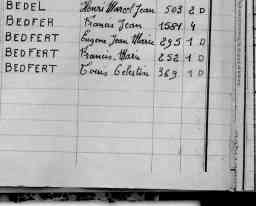 BEDEL Henri Marcel Jean 503 2 D
BEDFER Francis Jean 1584 4
BEDFERT Eugene Jean Marie 295 1 D
BEDFERT Francis Marie 252 1 D
BEDFERT Louis Celestin 369 1 D